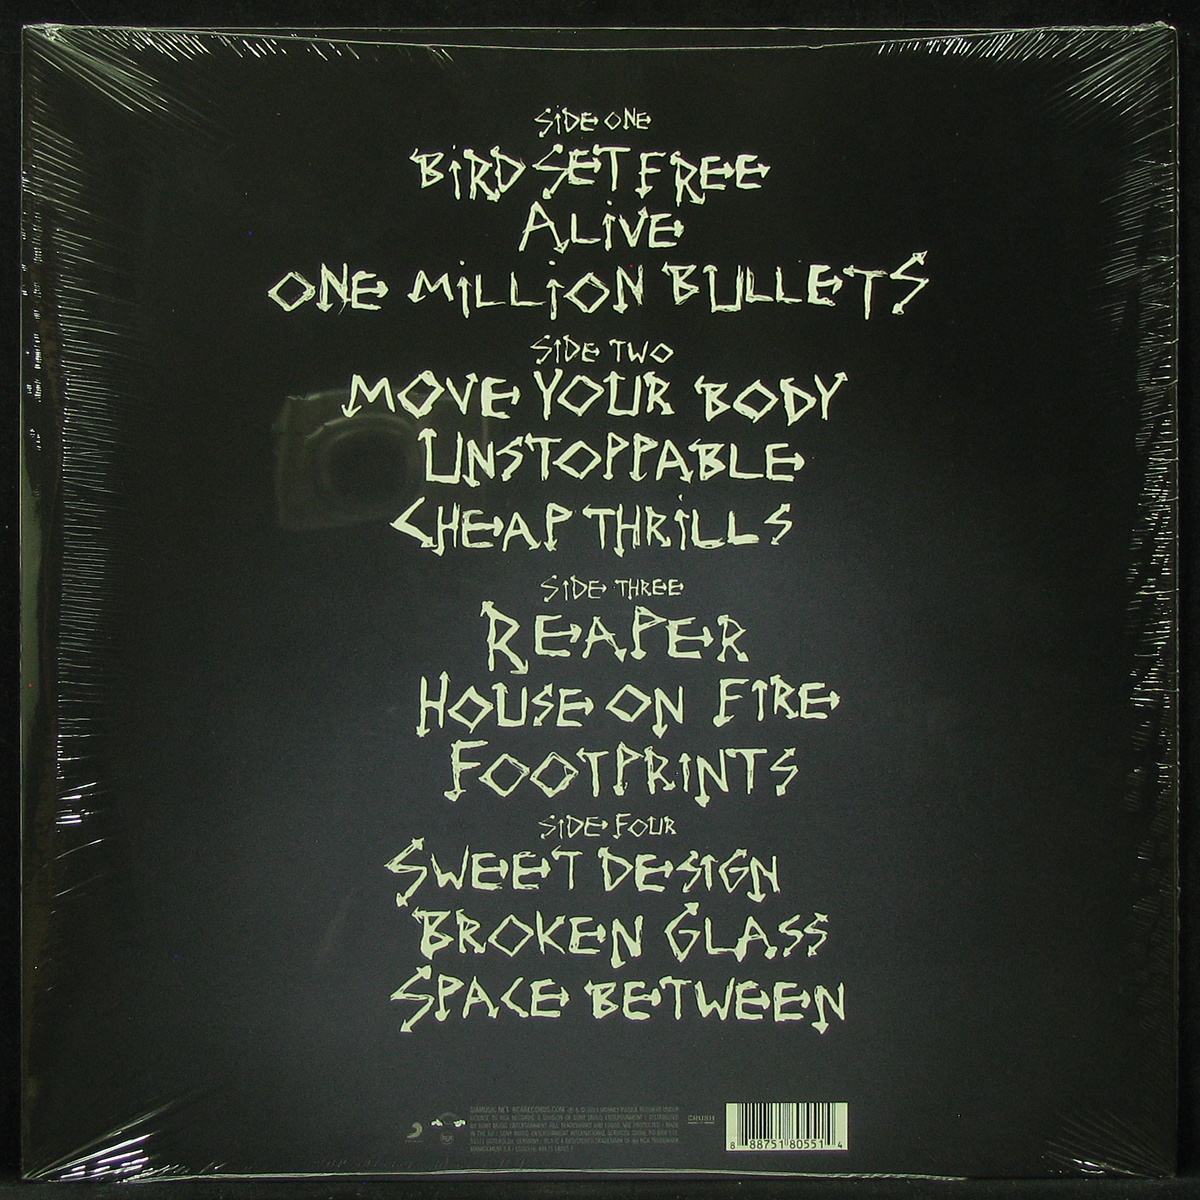 SIDE ONE
BIRD SET FREE
ALIVE
ONE MILLION BULLETS
SIDE TWO
MOVE YOUR BODY
UNSTOPPABLE
CHEAP THRILLS
SIDE THREE
REAPER
HOUSE ON FIRE
FOOTPRINTS
SIDE FOUR
SWEET DESIGN
BROKEN GLASS
SPACE BETWEEN
SIAMUSIC.NET RCARECORDS.COM
CRUSH
8 88751 80551 4